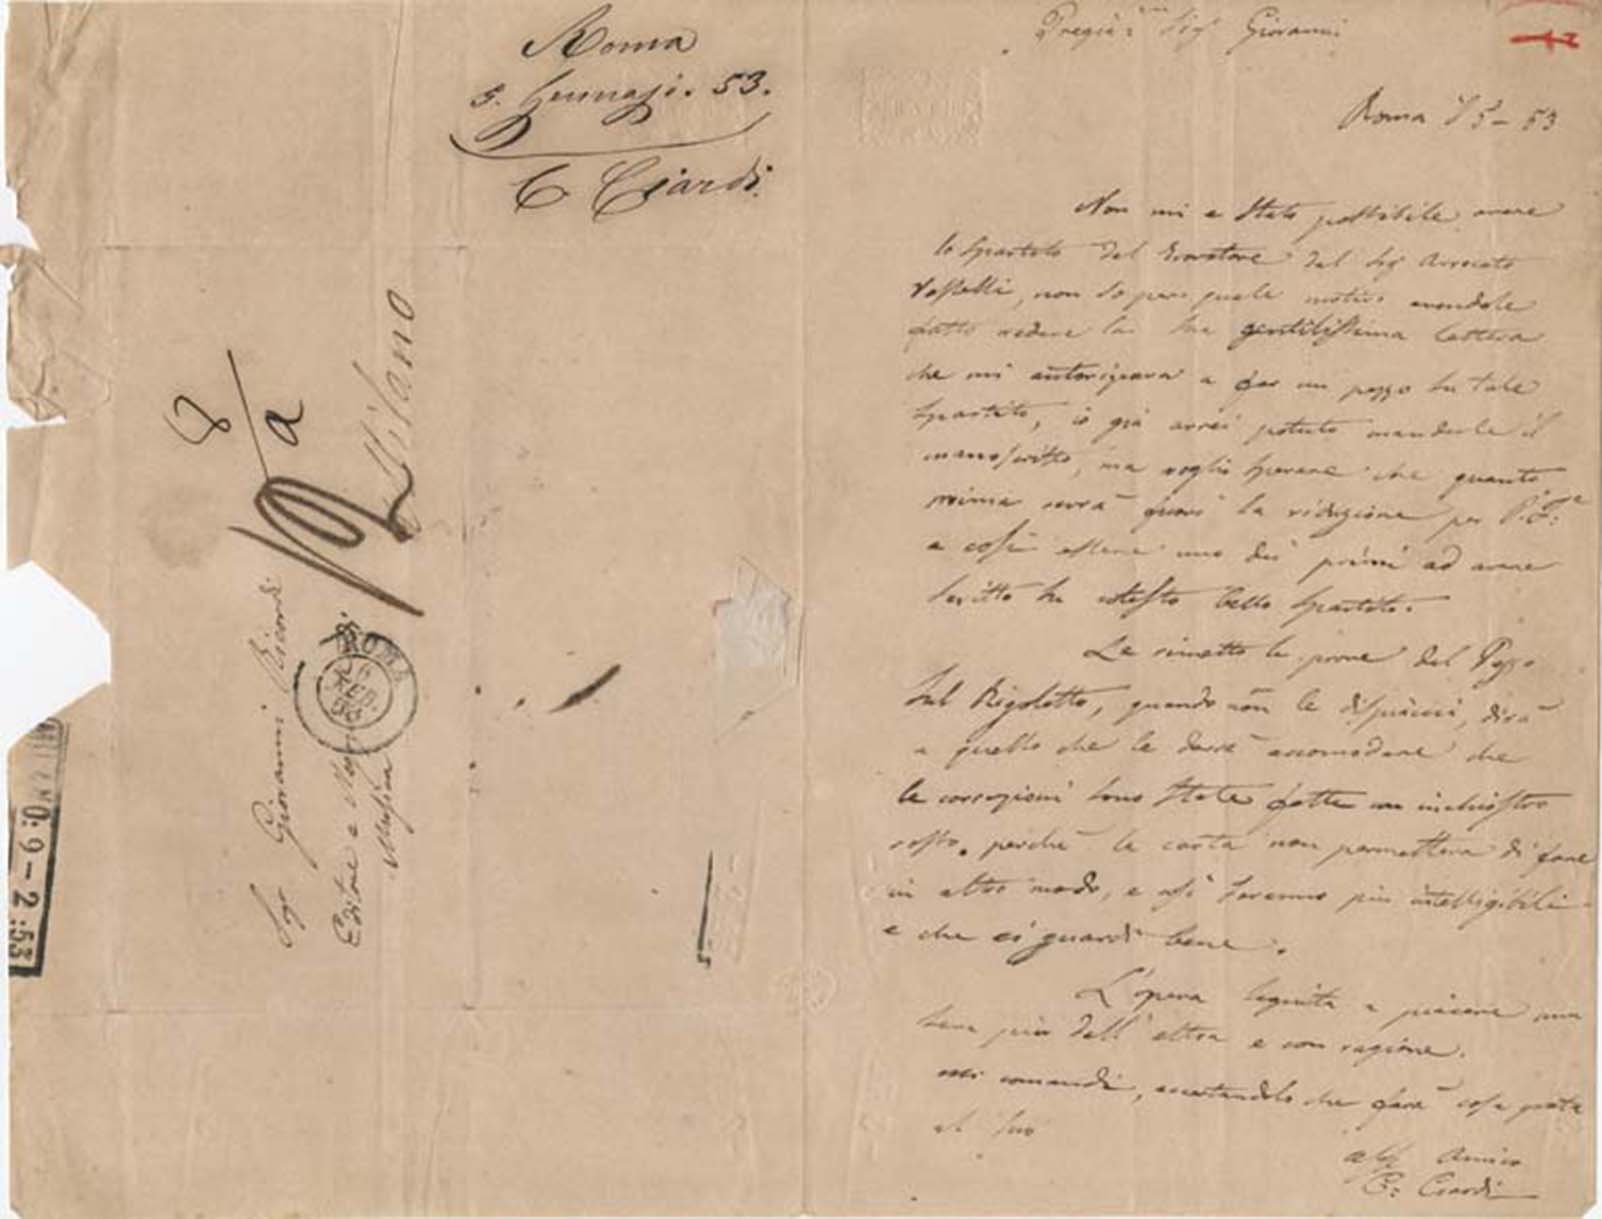 Roma
5. Gennajo. 53.
C Ciardi.
8
a
Milano
Sigr Giovanni Ricordi
Editore e
Musica
ROMA
MILANO
9-2
53
Pregiamo Sigr Giovanni
Roma 5-53
Non mi e stato possibile avere
lo spartito del Trovatore dal Sigr Avvocato
Vasselli, non so per quale motivo avendole
fatto vedere la sua gentilissima lettera
che mi autorizzava a far un pezzo su tale
spartito, io già avrei potuto mandarle il
manoscritto, ma voglio sperare che quanto
prima avrà fuori la riduzione per P.F.te
e così essere uno dei primi ad avere
scritto su cotesto bello spartito.
Le rimetto le prove del Pezzo
sul Rigoletto, quando non le dispiacci, dirà
a quello che le dovrà accomodare che
le correzioni sono state fatte con inchiostro
rosso, perchè la carta non permetteva di fare
in altro modo, e così saranno più intelligibili
e che ci guardi bene.
L'opera seguita a piacere una
sera più dell'altra e con ragione.
mi comandi, accertandolo che farà cosa grata
al suo
affo Amico
C: Ciardi